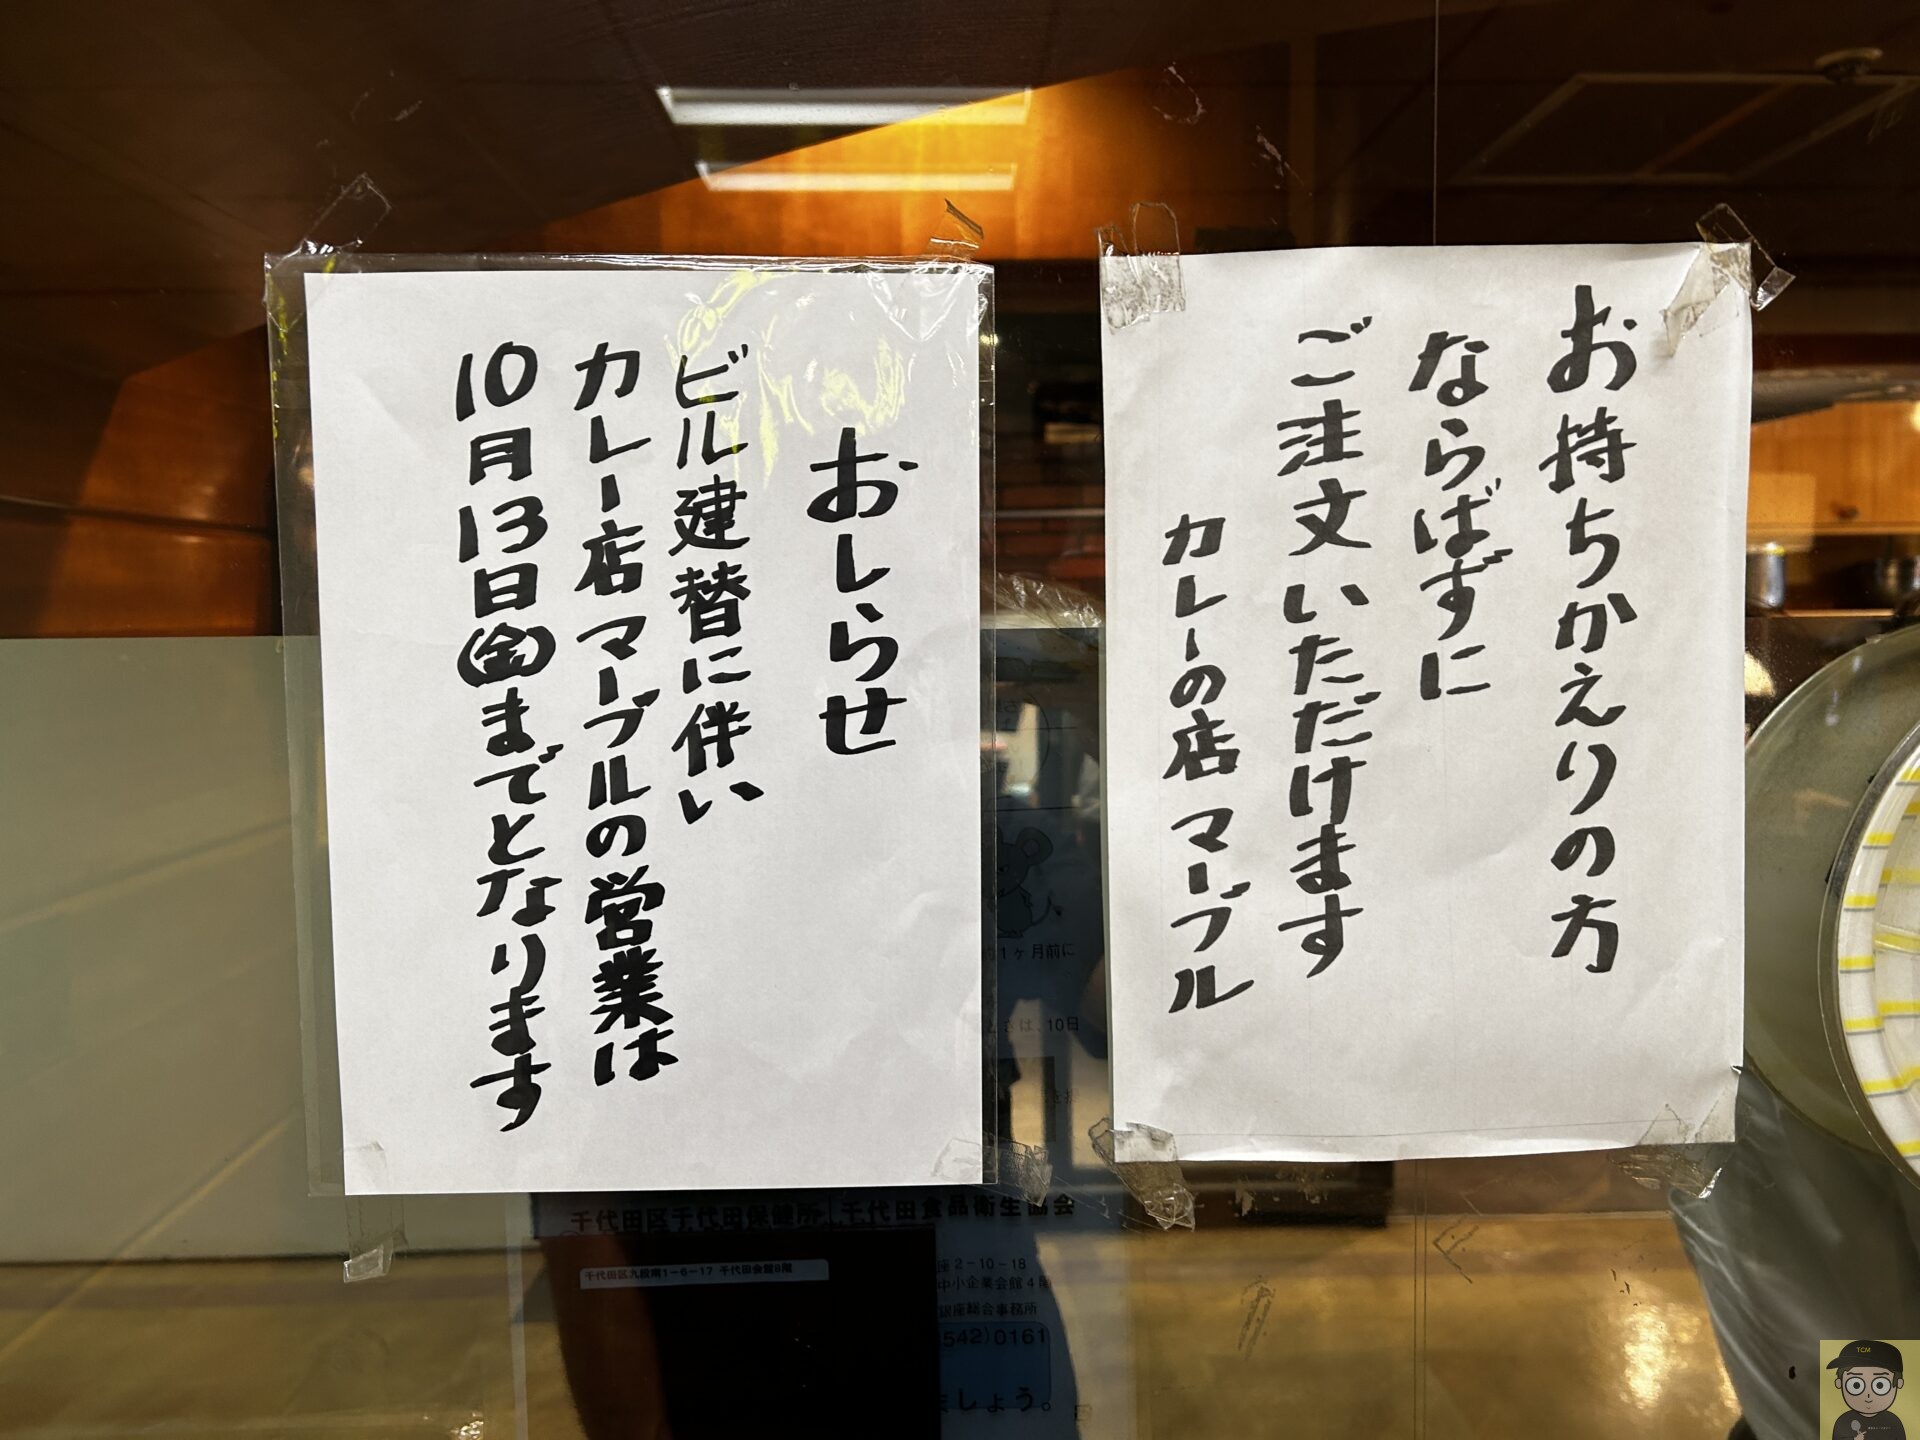 お持ちかえりの方
ならばずに
ご注文いただけます
カレーの店マーブル
おしらせ
ビル建替に伴い
カレー店マーブルの営業は
10月13日(金)までとなります
1ヶ月前に
は、10日
千代田区千代田保健所 千代田食品衛生協会
千代田区九段南1-6-17 千代田会館8階
座2-10-18
中小企業会館4階
銀座総合事務所
542)0161
ましょう。
TCM